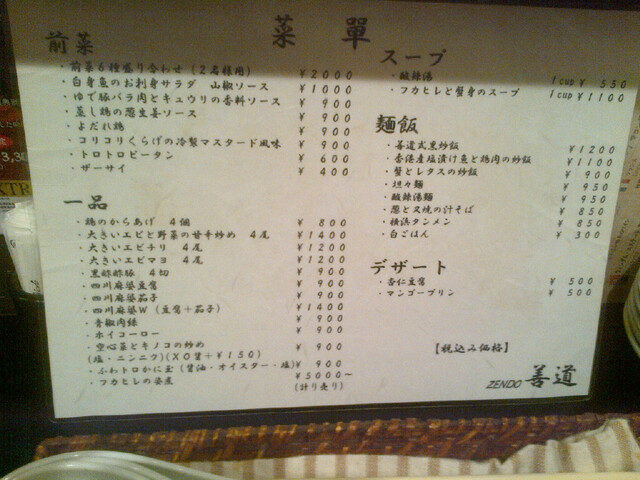 菜單
前菜
・前菜6種盛り合わせ(2名様用) ¥2000
・白身魚のお刺身サラダ 山椒ソース ¥1000
・ゆで豚バラ肉とキュウリの香料ソース ¥900
・蒸し鶏の葱生姜ソース ¥900
・よだれ鶏 ¥900
・コリコリくらげの冷製マスタード風味 ¥900
・トロトロピータン ¥600
・ザーサイ ¥400
一品
・鶏のからあげ 4個 ¥800
・大きいエビと野菜の甘辛炒め 4尾 ¥1400
・大きいエビチリ 4尾 ¥1200
・大きいエビマヨ 4尾 ¥1200
・黒酢酢豚 4切 ¥900
・四川麻婆豆腐 ¥900
・四川麻婆茄子 ¥900
・四川麻婆W(豆腐+茄子) ¥1400
・青椒肉絲 ¥900
・ホイコーロー ¥900
・空心菜とキノコの炒め ¥900
(塩・ニンニク)(XO醤+¥150)
・ふわトロかに玉(醤油・オイスター・塩) ¥900
・フカヒレの姿煮 ¥5000~
(計り売り)
スープ
・酸辣湯 1cup ¥550
・フカヒレと蟹身のスープ 1cup ¥1100
麺飯
・善道式黒炒飯 ¥1200
・香港産塩漬け魚と鶏肉の炒飯 ¥1100
・蟹とレタスの炒飯 ¥900
・坦々麺 ¥950
・酸辣湯麺 ¥950
・葱と叉焼の汁そば ¥850
・横浜タンメン ¥850
・白ごはん ¥300
デザート
・杏仁豆腐 ¥500
・マンゴープリン ¥500
【税込み価格】
ZENDO 善道